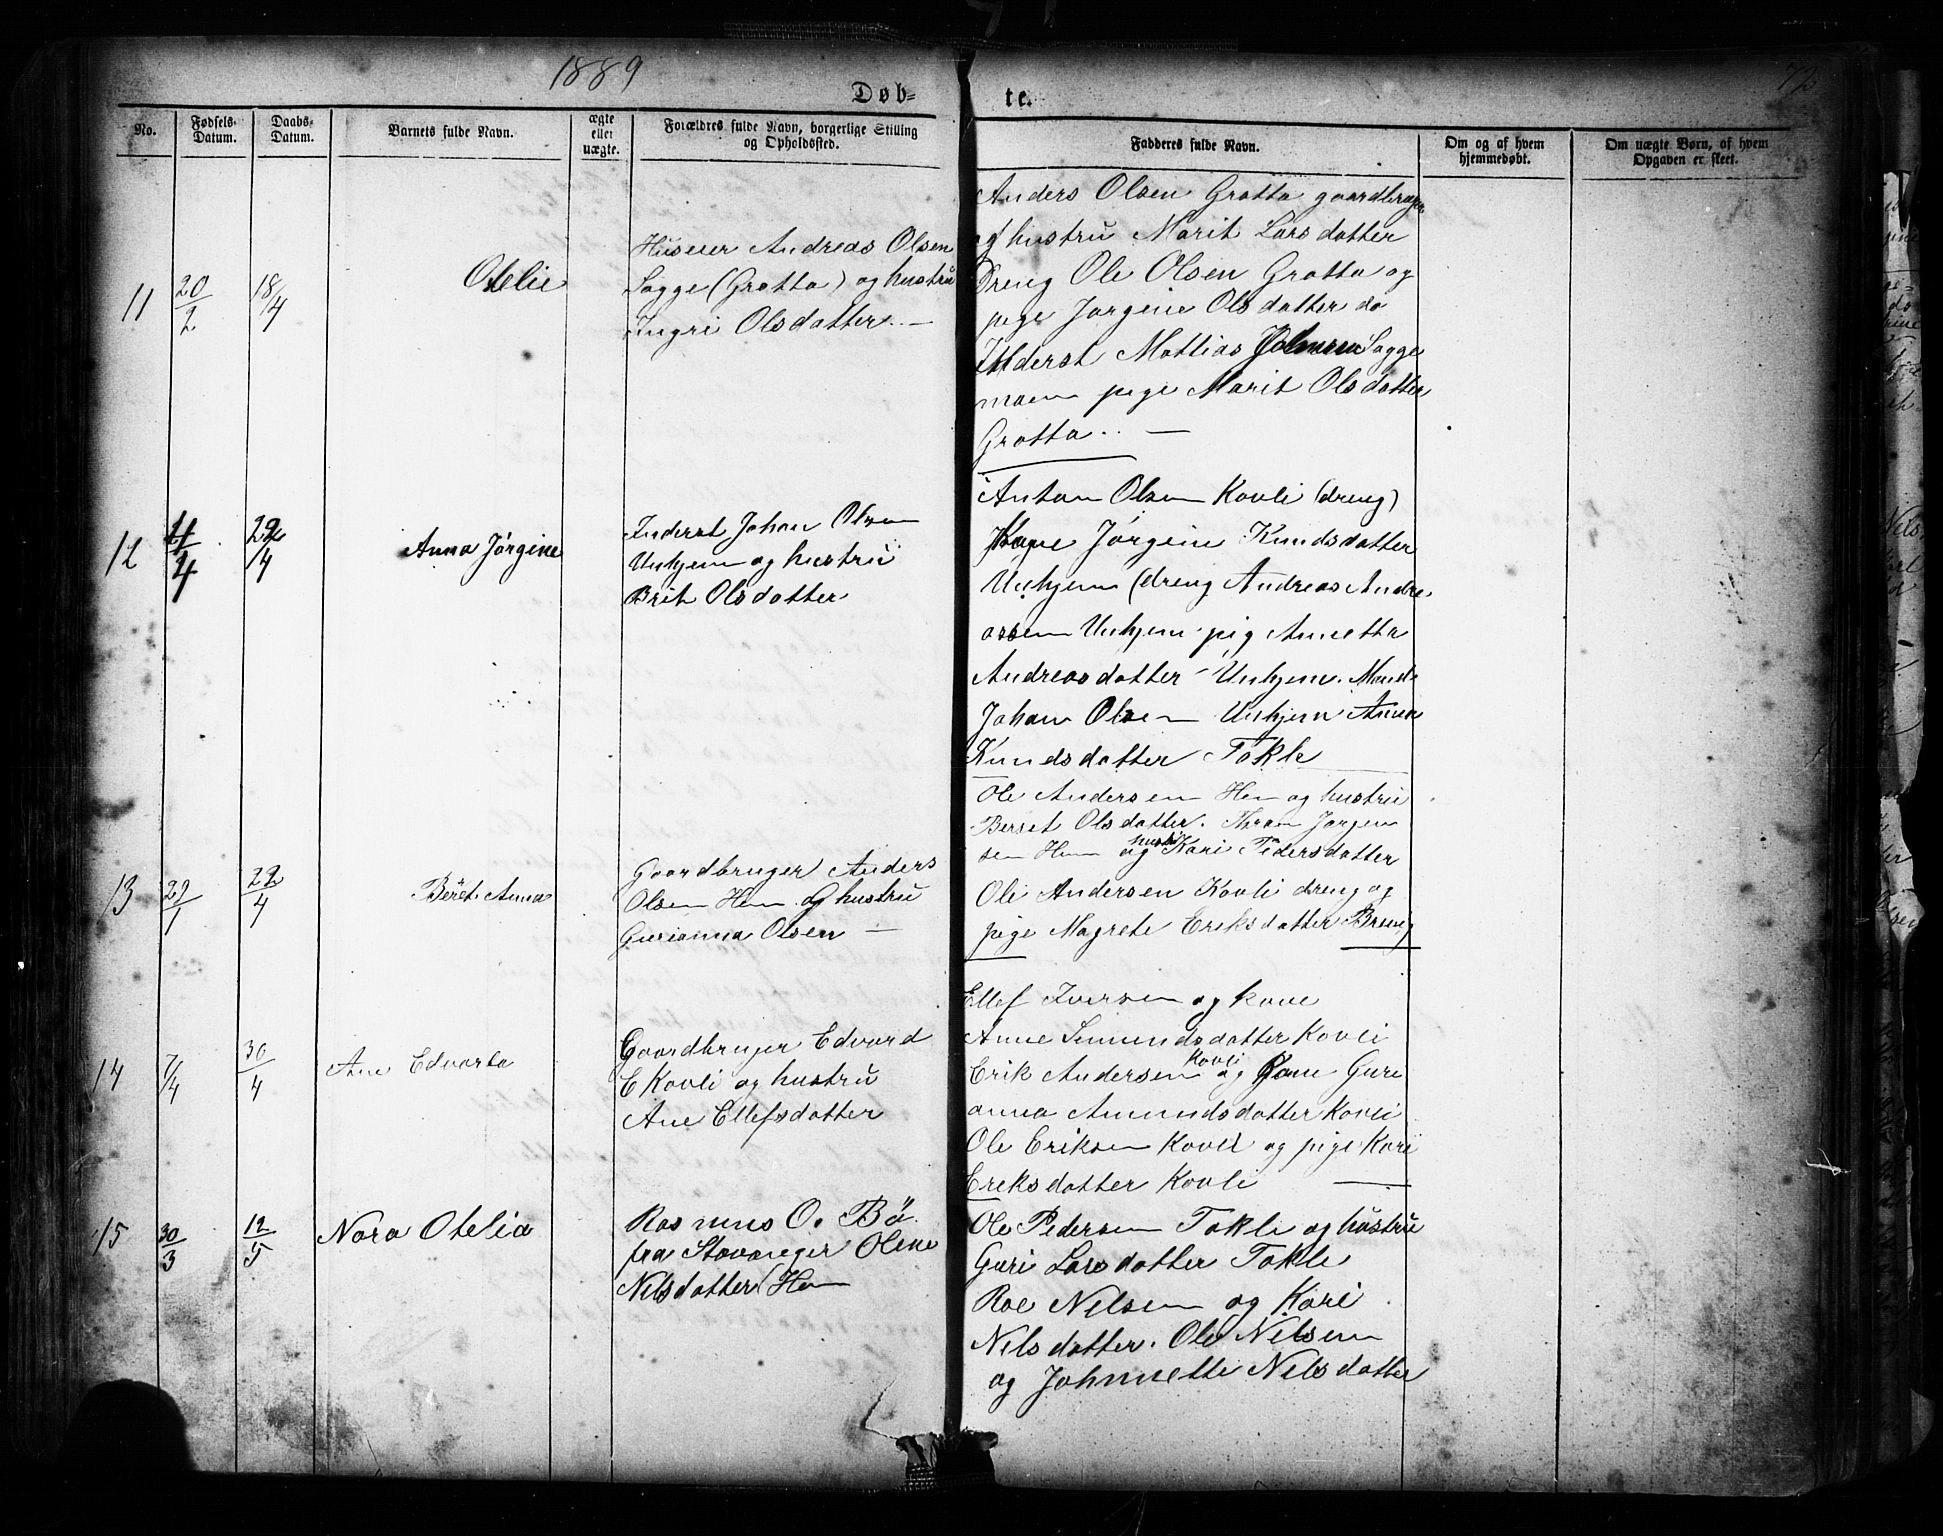 1889
72
Døb-
te.
No.
Fødsels-
Datum.
Daabs-
Datum.
Barnets fulde Navn.
ægte
eller
uægte.
Forældres fulde Navn, borgerlige Stilling
og Opholdssted.
Faddernes fulde Navn.
Om og af hvem
hjemmedøbt.
Om uægte Børn, af hvem
Opgaven er skeet.
11
20/2
18/4
Otelie
Huseier Andreas Olsen
Sogge (Grotta) og hustru
Ingri Olsdatter. —
Anders Olsen Grotta gaardbruger
og hustru Marit Larsdatter
Dreng Ole Olsen Grotta og
pige Jorgine Olsdatter do
Inderst Mattias Johnsen Sogge
moen pige Marit Olsdatter
Grotta.. —
12
4/4
22/4
Anna Jørgine
Inderst Johan Olsen
Unhjem og hustru
Brit Olsdatter
Anton Olsen Kovli (dreng)
Jørgine Knudsdatter
Unhjem (dreng Andreas Andre
assen Unhjem pig Annetta
Andreasdatter Unhjem. Mand
Johan Olsen Unhjem Anna
Knudsdatter Tokle
13
22/1
22/4
Beret Anna
Gaardbruger Anders
Olsen Hem og hustru
Gurianna Olsen —
Ole Andersen Hem og hustru
Berret Olsdatter. Jorgen
sen Hem og hustr Kari Pedersdatter
Ole Andersen Kovli dreng og
pige Magrete Eriksdatter Brevig
14
7/4
30/4
Ane Edvarta
Gaardbruger Edvard
E Kovli og hustru
Ane Ellefsdatter
Ellef Iversen og kone
Anne Simundsdatter Kovli
Erik Andersen Kovli og Kone Guri
anna Amundsdatter Kovli
Ole Eriksen Kovli og pige Kari
Ereksdatter Kovli —
15
30/3
12/5
Nora Otelia
Rasmus O. Bø
fra Stavanger Oline
Nelsdatter (Hem
Ole Pedersen Tokle og hustru
Guri Larsdatter Tokle
Roe Nelsen og Kari
Nelsdatter. Ole Nelsen
og Johnnette Nelsdatter